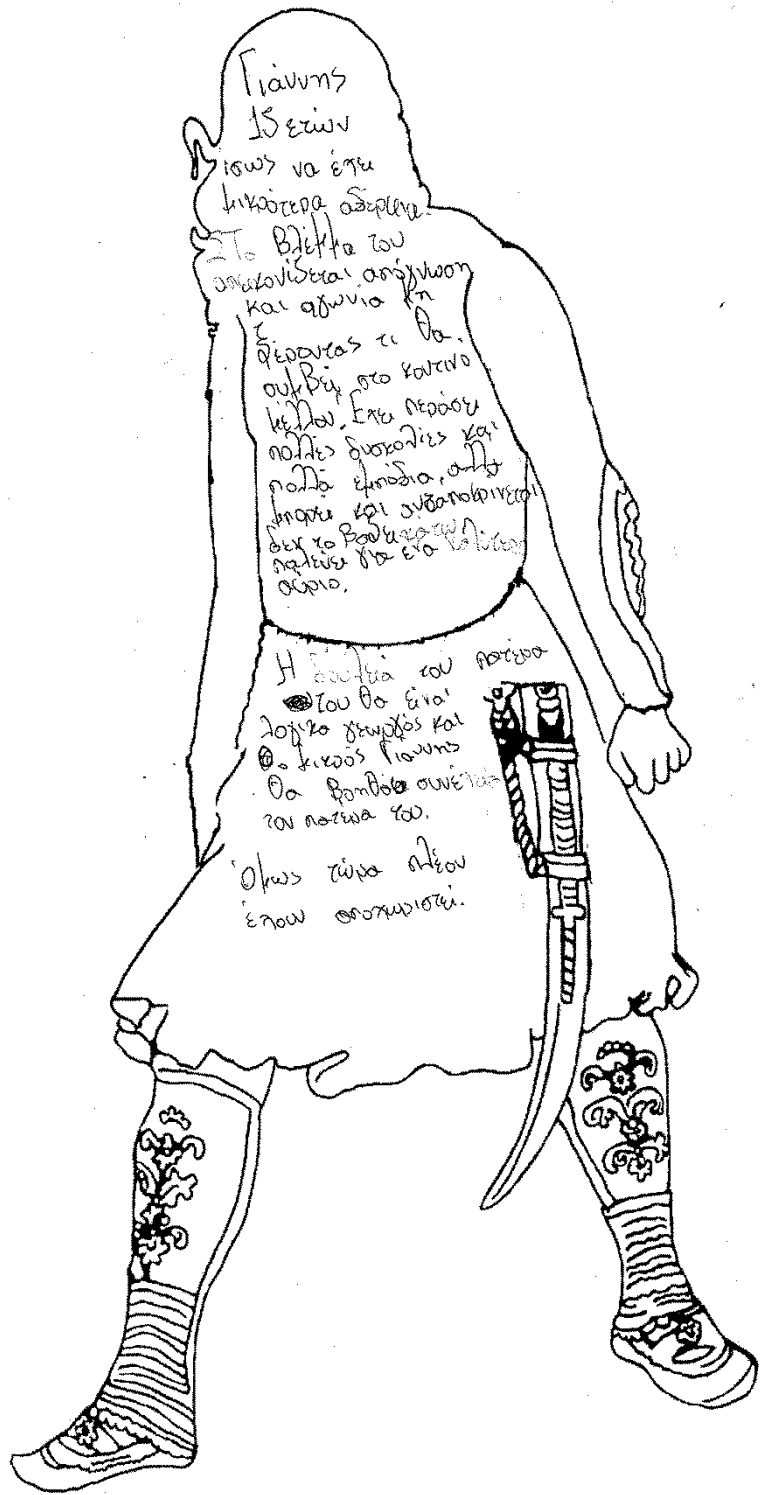 Γιάννης
15 ετών
ισως να έχει
μικρότερα αδέρφια.
Στο βλέμμα του
απεικονίζεται απόγνωση
και αγωνία μη
ξέροντας τι θα
συμβεί στο κοντινό
μέλλον. Έχει περάσει
πολλές δυσκολίες και
πολλά εμπόδια, αλλά
μπορεί και ανταποκρίνεται
δεν το βάζει κάτω
παλεύει για ένα καλύτερο
αύριο.
Η δουλειά του πατέρα
του θα είναι
λογικα γεωργός και
ο μικρός Γιάννης
θα βοηθάει συνέχεια
τον πατερα του.
Όμως τώρα πλέον
έχουν αποχωριστεί.